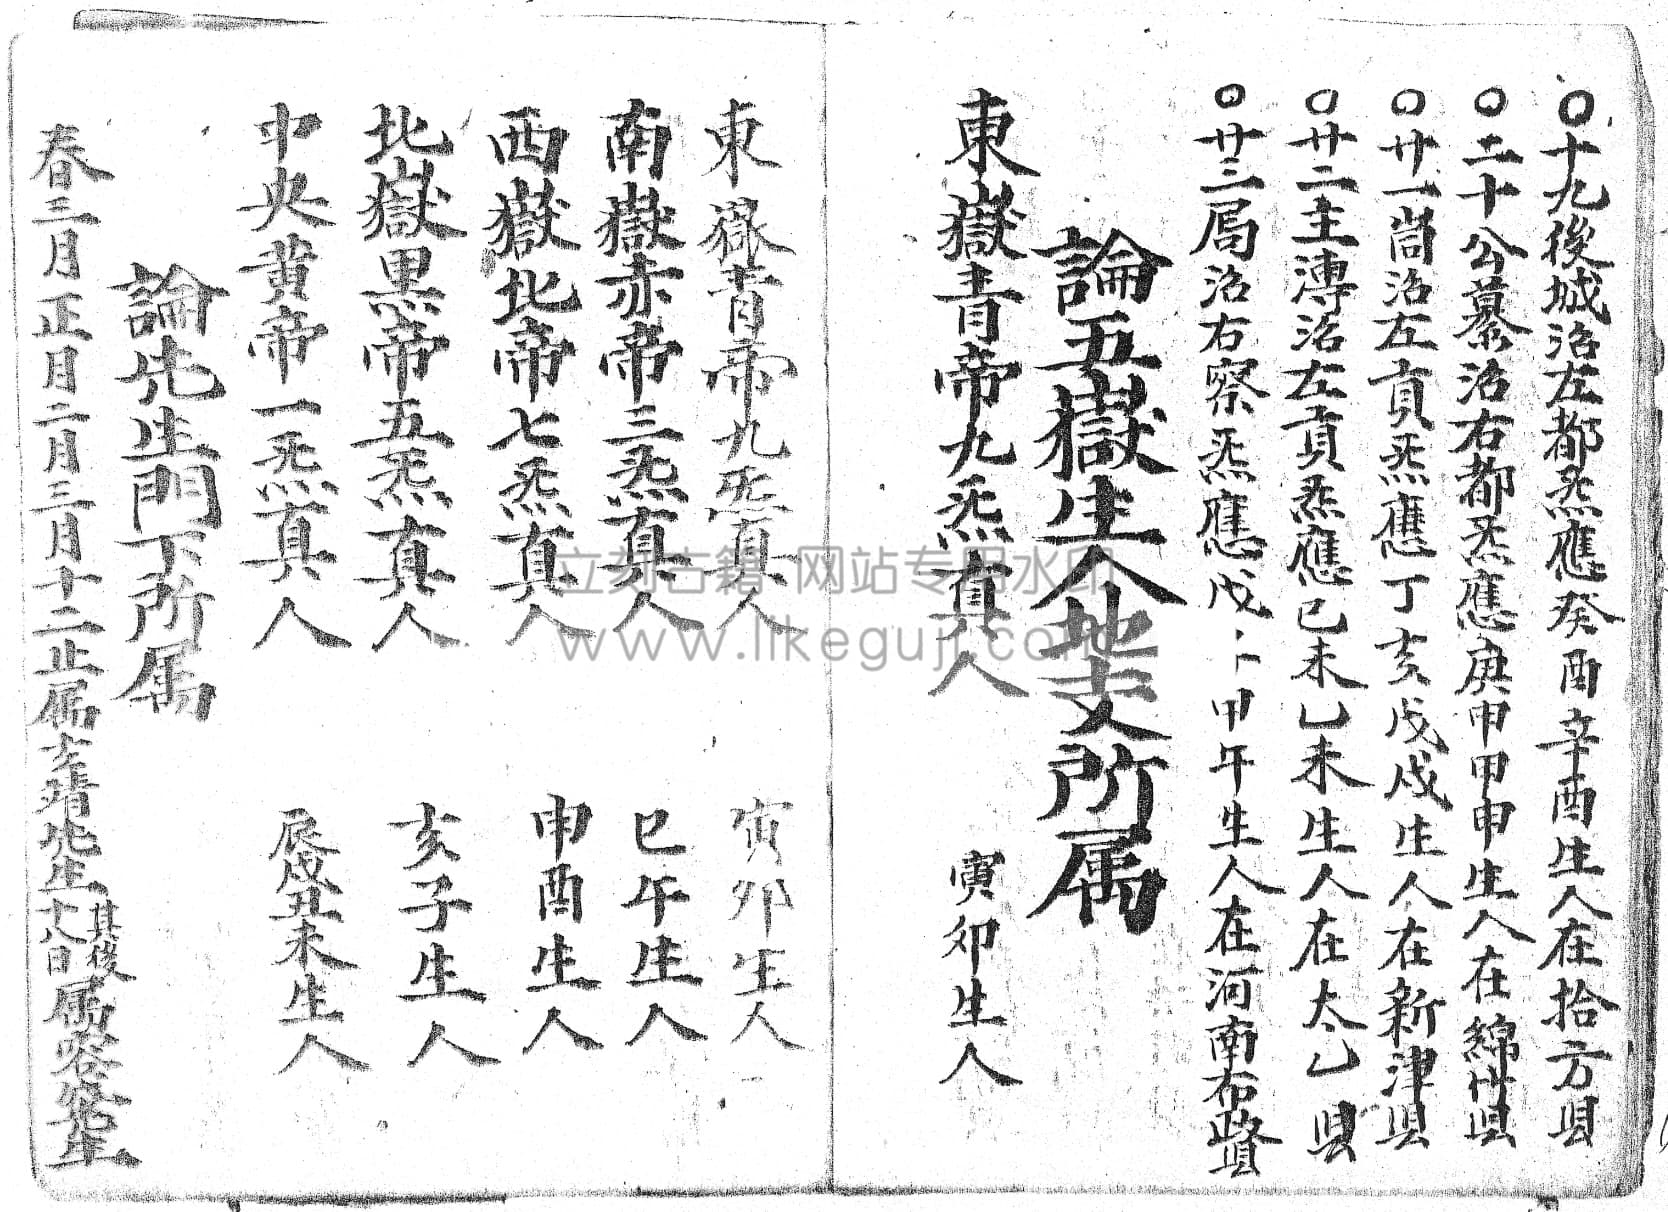 〇十九後城治左都炁應癸酉辛酉生人在拾方県
〇二十公墓治右都炁應庚申甲申生人在綿竹県
〇廿一崗治左貢炁應丁亥戊戌生人在新津県
〇廿二主溥治左貢炁應己未乙未生人在太乙県
〇廿三局治右察炁應戊甲午生人在河南布
論五嶽生人地支所属
東嶽青帝九炁真人 寅卯生人
東嶽青帝九炁真人 寅卯生人
南嶽赤帝三炁真人 巳午生人
西嶽北帝七炁真人 申酉生人
北嶽黒帝五炁真人 亥子生人
中央黄帝一炁真人 辰戌丑未生人
論先生門下所属
春三月正月二月三月十二止属玄靖先生其後十八日属先生
立刻古籍 网站专用水印
www.likeguji.com